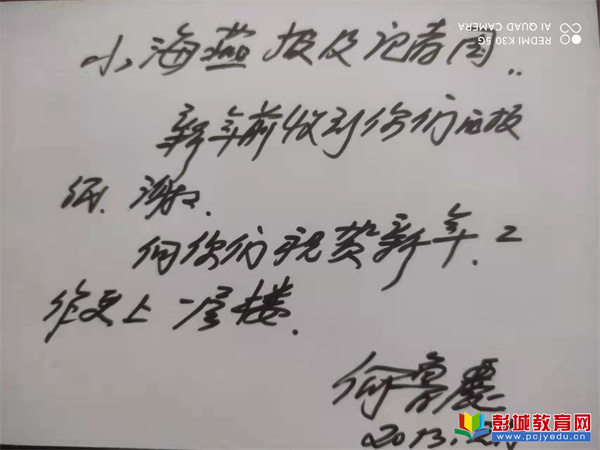 REDMI K30 5G
AI QUAD CAMERA
小海燕报及记者团:
新年前收到你们的报
纸、谢谢.
向你们祝贺新年、工
作更上一层楼.
何鲁丽
2013.
彭城教育网
www.pcjyedu.cn